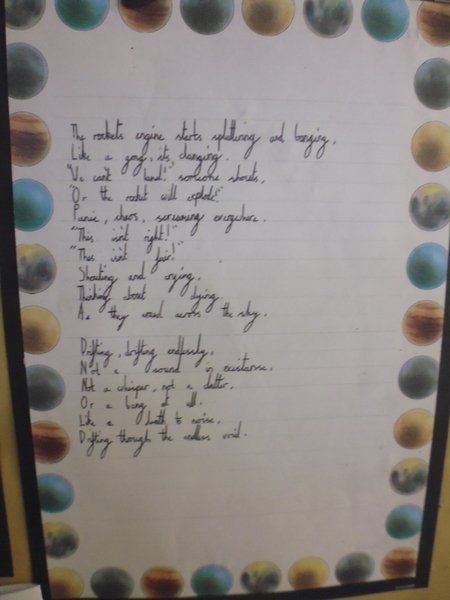 The rockets engine starts spluttering and banging,
Like a gong, its clanging.
"We can't land!" someone shouts,
"Or the rocket will explode!"
Panic, chaos, screaming everywhere.
"This isn't right!"
"This isn't fair!"
Shouting and crying,
Thinking about dying
As they across the sky.
Drifting, drifting endlessly,
Not a sound in existanse,
Not a whisper, not a clatter,
Or a bang at all.
Like a death to noise,
Drifting through the endless void.